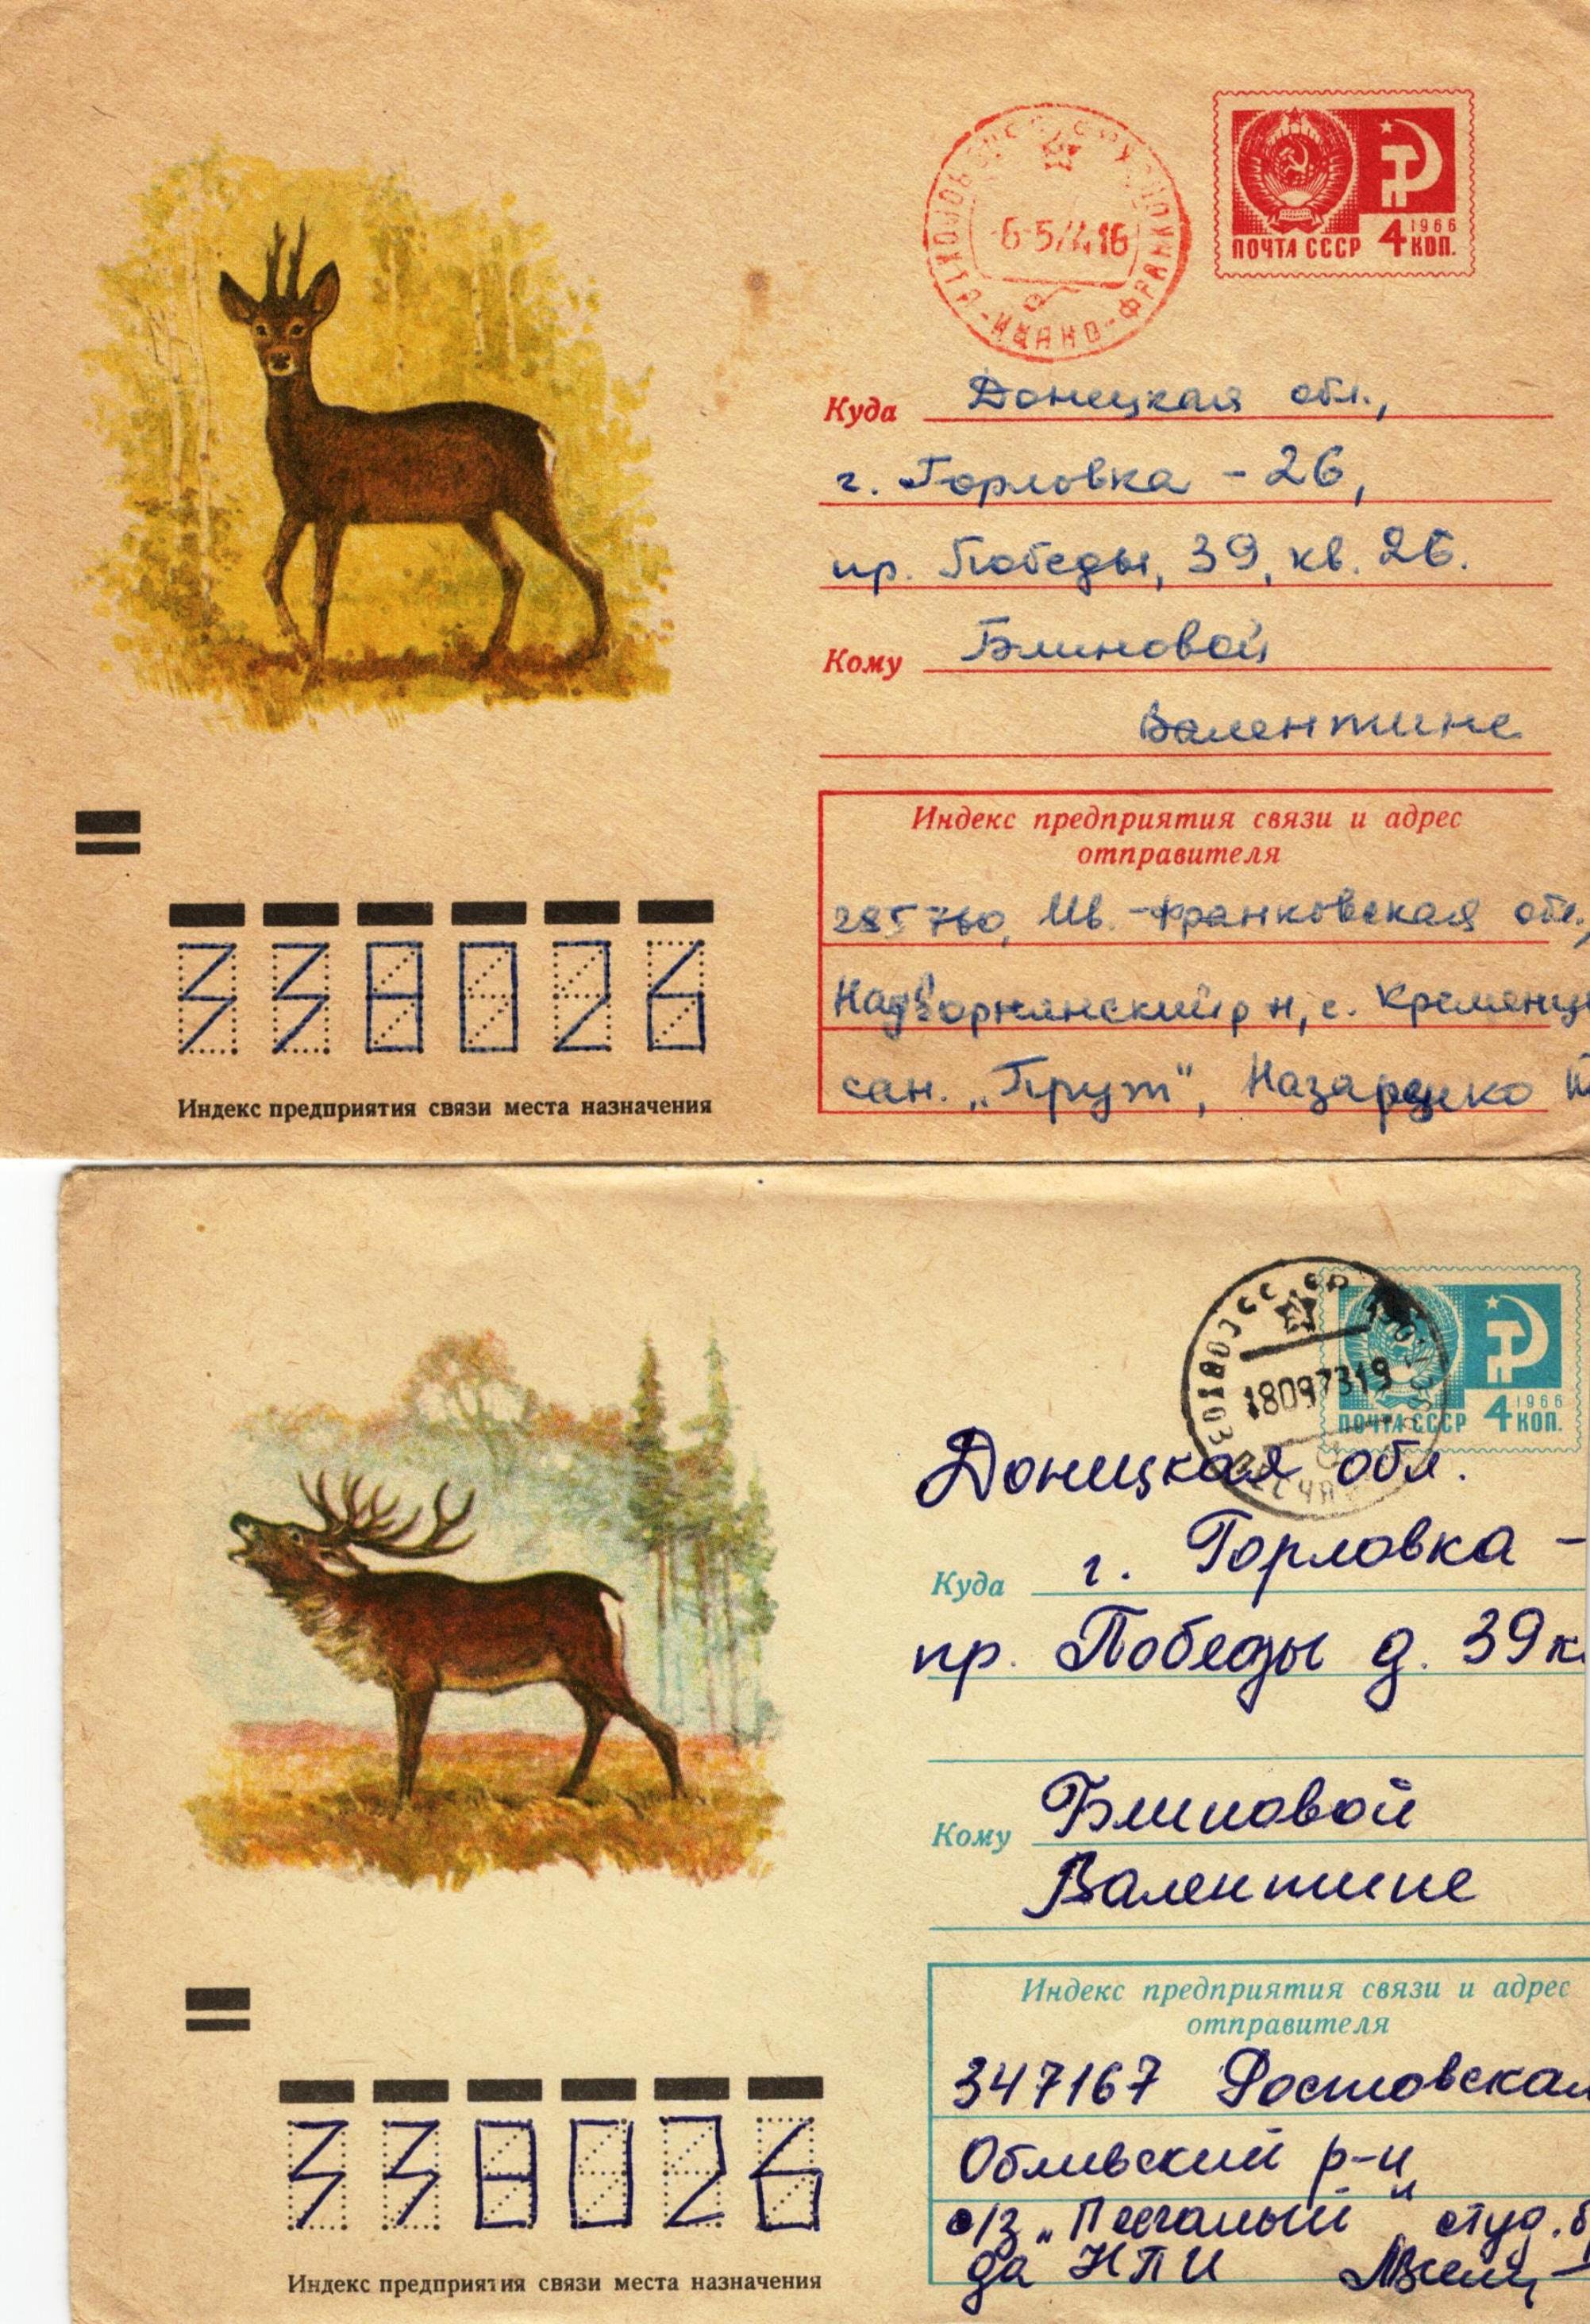 ИВАНО-ФРАНК
6-5/7416
1966
ПОЧТА СССР 4 КОП.
Куда Донецкая обл.,
г. Горловка - 26,
пр. Победы, 39, кв. 26.
Кому Блиновой
Валентине
Индекс предприятия связи и адрес
отправителя
285760, Ив.-Франковская обл.,
Надворнянский р н, с. Кременцы
сан. „Прут", Назаренко
338026
Индекс предприятия связи места назначения
18097319
1966
ПОЧТА СССР 4 КОП.
Донецкая обл.
Куда г. Горловка -
пр. Победы д. 39 к
Кому Блиновой
Валентине
Индекс предприятия связи и адрес
отправителя
347167 Ростовская
Обливский р-н
с/з „Песчаный" студ.
да НПИ
338026
Индекс предприятия связи места назначения